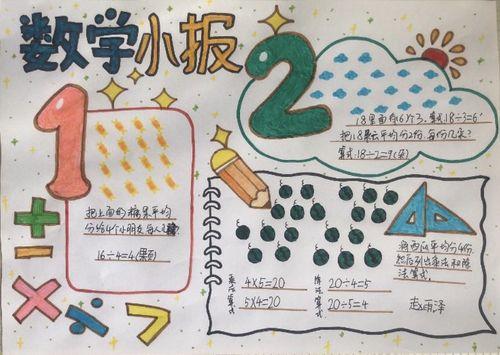 数学小报
1
2
18里面有6个3,算式:18÷3=6
把18朵云平均分2份,每份几朵?
算式:18÷2=9(朵)
把上面的糖果平均
分给4个小朋友,每人几
16÷4=4(颗)
将西瓜平均分4份,
然后列出乘法和除
法算式。
乘法算式
4×5=20
5×4=20
除法算式
20÷4=5
20÷5=4
赵雨泽